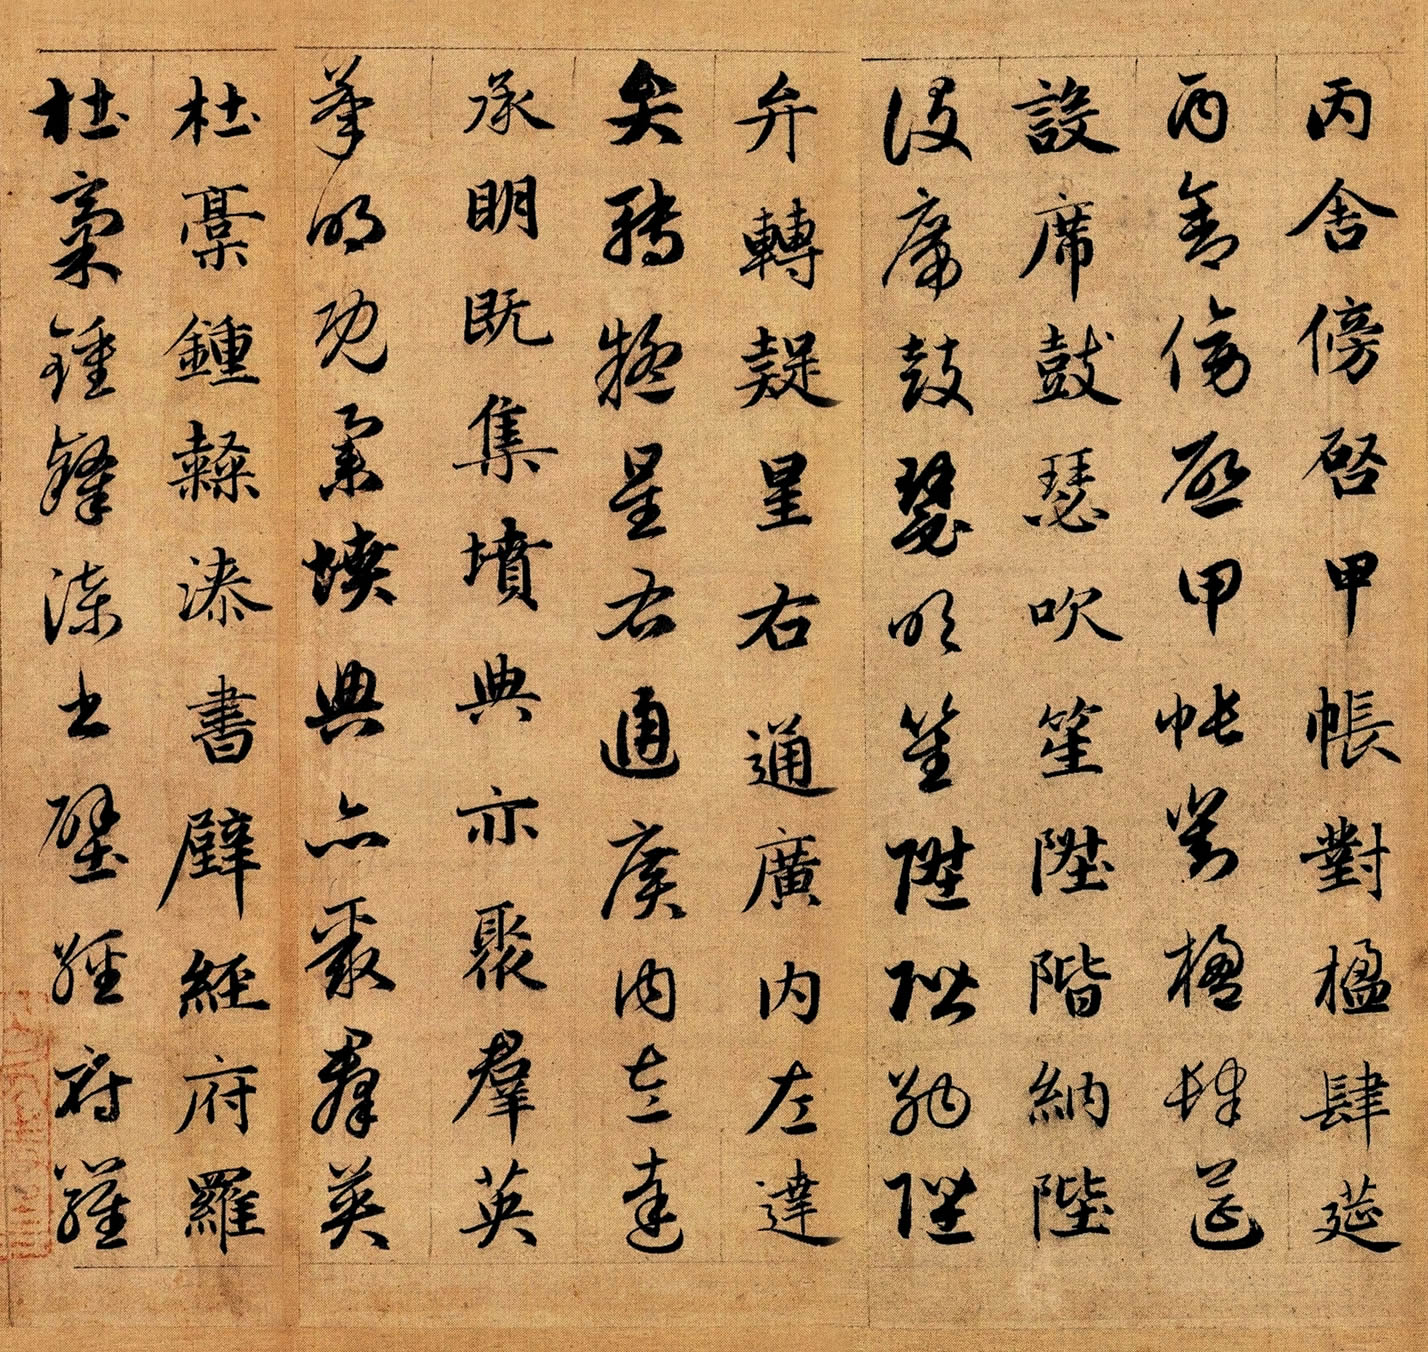 丙舍傍啓甲帳對楹肆筵
丙舍傍啓甲帳對楹肆筵
設席鼓瑟吹笙陞階納陛
設席鼓瑟吹笙陞階納陛
弁轉疑星右通廣内左達
弁轉疑星右通廣内左達
承明既集墳典亦聚羣英
承明既集墳典亦聚羣英
杜稾鍾隸漆書壁經府羅
杜稾鍾隸漆書壁經府羅